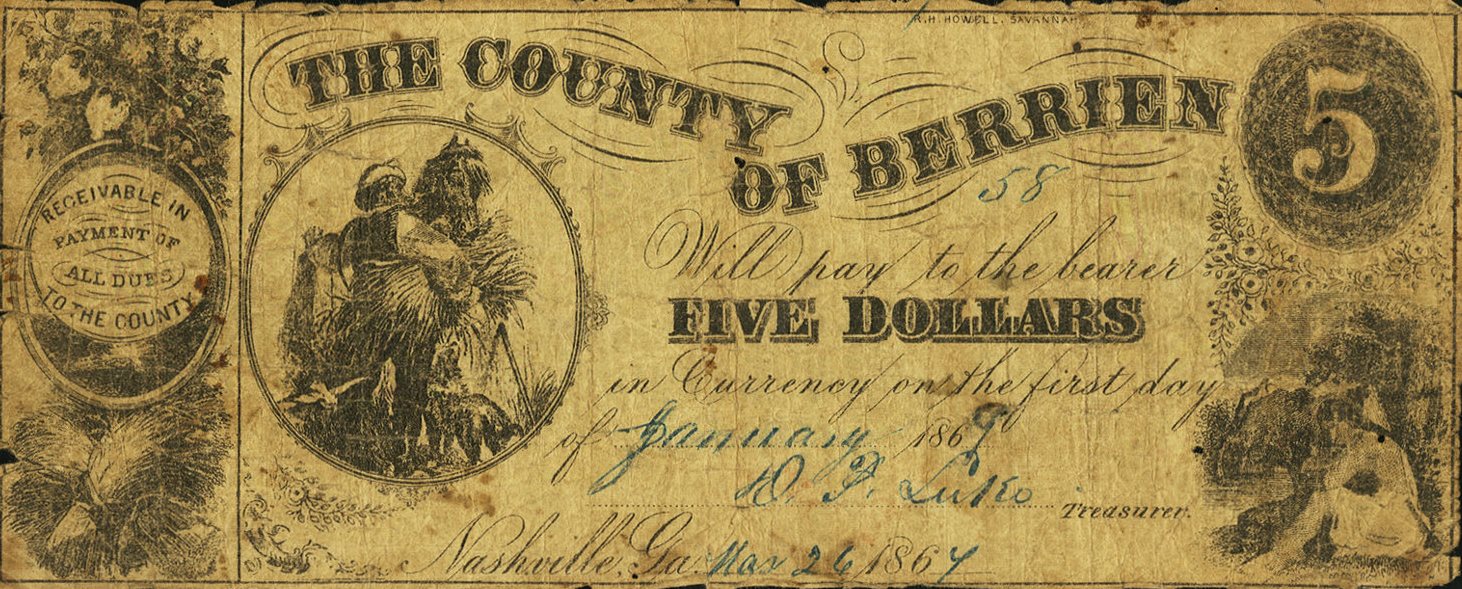 R.H. HOWELL, SAVANNAH
THE COUNTY
OF BERRIEN
5
58
RECEIVABLE IN
PAYMENT OF
ALL DUES
TO THE COUNTY
Will pay to the bearer
FIVE DOLLARS
in Currency on the first day
of January 1869
D. F. Luke
Treasurer.
Nashville, Ga Mar 26 1867